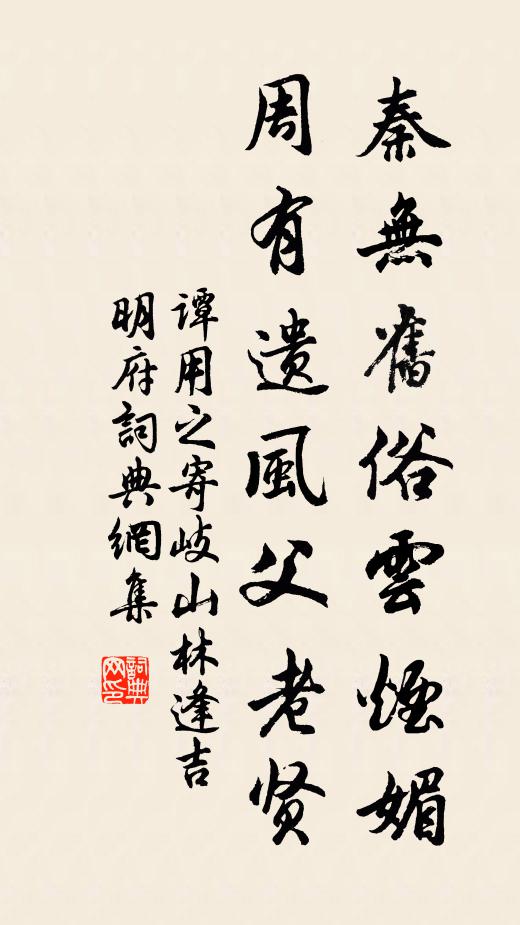 秦無舊俗雲煙媚
周有遺風父老贤
譚用之寄岐山林逢吉
明府詞典網集
詞典网印